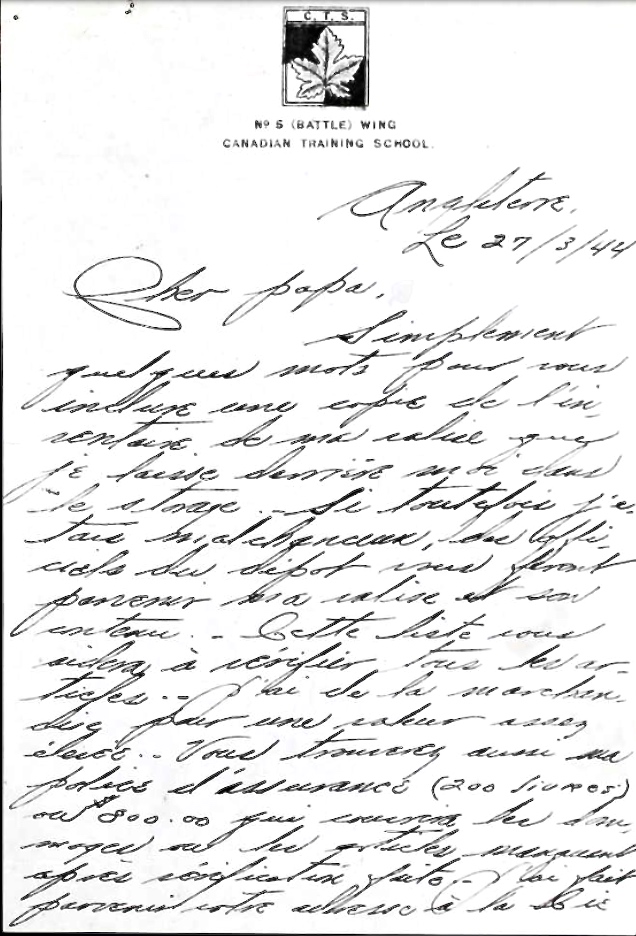 C. T. S.
Nº 5 (BATTLE) WING
CANADIAN TRAINING SCHOOL.
Angleterre.
Le 27/3/44
Cher papa,
Simplement
quelques mots pour vous
inclure une copie de l'in-
ventaire de ma valise que
je laisse derrière moi dans
le storage.- Si toutefois j'é-
tais malchanceux, les offi-
ciels du dépot vous feront
parvenir ma valise et son
contenu.- Cette liste vous
aidera à vérifier tous les ar-
ticles.- J'ai de la marchan-
dise pour une valeur assez
élevée.- Vous trouverez aussi ma
police d'assurance (200 livres)
ou $800.00 qui couvrira les dom-
mages ou les articles manquant
après vérification faite.- J'ai fait
parvenir votre adresse à la Cie